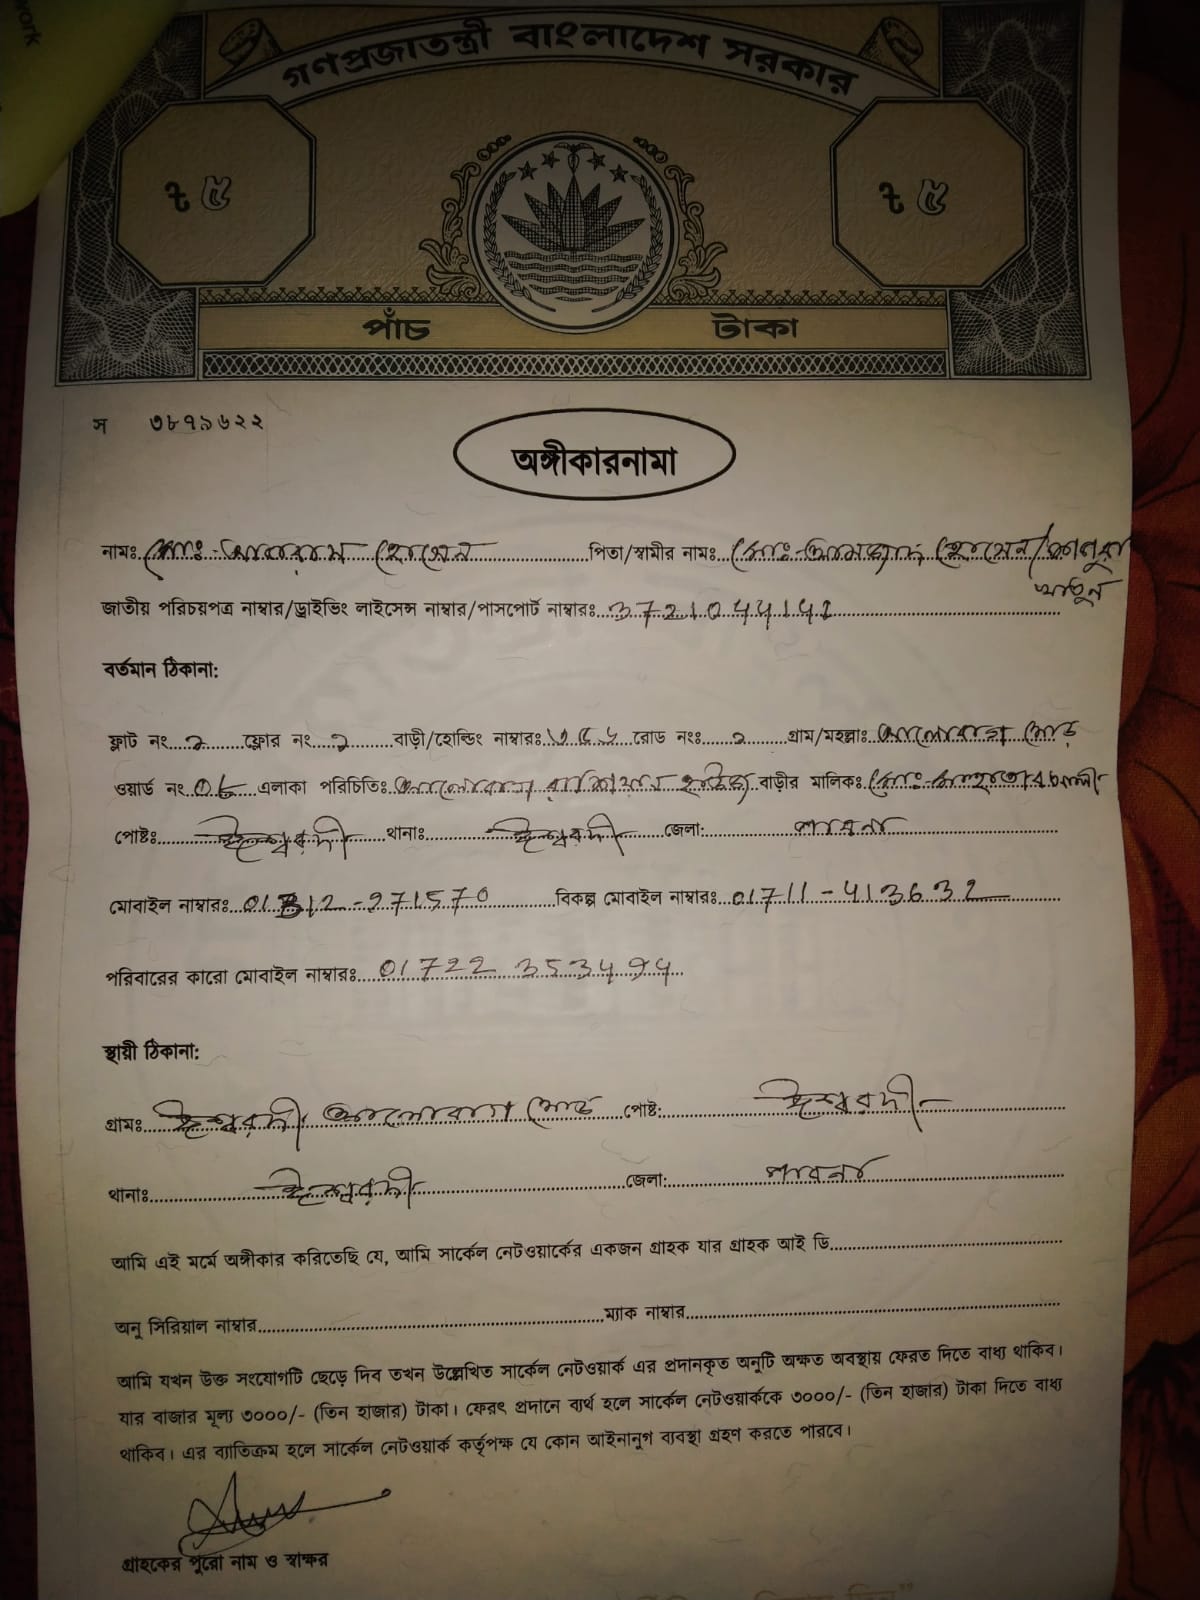 work
গণপ্রজাতন্ত্রী বাংলাদেশ সরকার
৳ ৫ ৳ ৫
পাঁচ টাকা
স ৩৮৭৯৬২২
অঙ্গীকারনামা
নামঃ মোঃ- হোসেন পিতা/স্বামীর নামঃ মোঃ- হোসেন/
খাতুন
জাতীয় পরিচয়পত্র নাম্বার/ড্রাইভিং লাইসেন্স নাম্বার/পাসপোর্ট নাম্বারঃ
বর্তমান ঠিকানা:
ফ্লাট নং ফ্লোর নং বাড়ী/হোল্ডিং নাম্বারঃ রোড নংঃ গ্রাম/মহল্লাঃ আলোবাগ মোড়
ওয়ার্ড নং এলাকা পরিচিতিঃ আলোবাগ বাড়ীর মালিকঃ মোঃ-
পোষ্টঃ ঈশ্বরদী থানাঃ ঈশ্বরদী জেলা: পাবনা
মোবাইল নাম্বারঃ বিকল্প মোবাইল নাম্বারঃ 01711-413632
পরিবারের কারো মোবাইল নাম্বারঃ
স্থায়ী ঠিকানা:
গ্রামঃ ঈশ্বরদী, আলোবাগ মোড় পোষ্ট: ঈশ্বরদী
থানাঃ ঈশ্বরদী জেলা: পাবনা
আমি এই মর্মে অঙ্গীকার করিতেছি যে, আমি সার্কেল নেটওয়ার্কের একজন গ্রাহক যার গ্রাহক আই ডি
অনু সিরিয়াল নাম্বার ম্যাক নাম্বার
আমি যখন উক্ত সংযোগটি ছেড়ে দিব তখন উল্লেখিত সার্কেল নেটওয়ার্ক এর প্রদানকৃত অনুটি অক্ষত অবস্থায় ফেরত দিতে বাধ্য থাকিব।
যার বাজার মূল্য ৩০০০/- (তিন হাজার) টাকা। ফেরৎ প্রদানে ব্যর্থ হলে সার্কেল নেটওয়ার্ককে ৩০০০/- (তিন হাজার) টাকা দিতে বাধ্য
থাকিব। এর ব্যাতিক্রম হলে সার্কেল নেটওয়ার্ক কর্তৃপক্ষ যে কোন আইনানুগ ব্যবস্থা গ্রহণ করতে পারবে।
গ্রাহকের পুরো নাম ও স্বাক্ষর